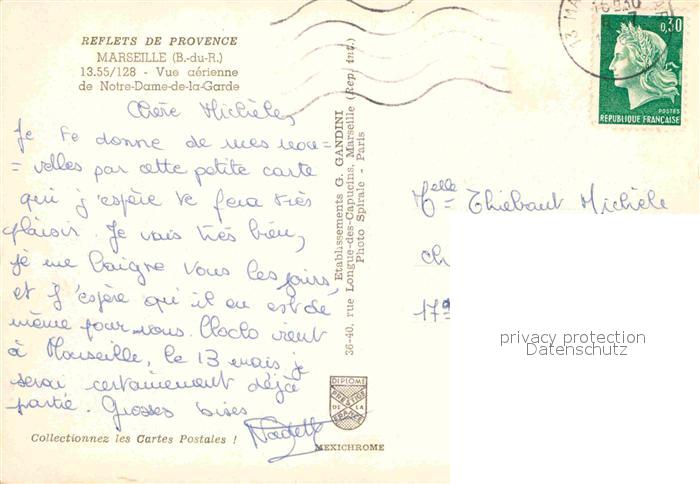 REFLETS DE PROVENCE
MARSEILLE (B.-du-R.)
13.55/128 - Vue aérienne
de Notre-Dame-de-la-Garde
Chère Michèle,
Je te donne de mes nou=
=velles par cette petite carte
qui j'espère te fera très
plaisir. Je vais très bien,
je me baigne tous les jours,
et j'espère qu'il en est de
même pour vous. Cloclo vient
à Marseille, le 13 mais je
serai certainement déjà
partie. Grosses bises
Collectionnez les Cartes Postales !
Etablissements G. GANDINI
36-40, rue Longue-des-Capucins, Marseille (Rep. int.)
Photo Spirale - Paris
DIPLOME
PRESTIGE
DE LA
FRANCE
MEXICHROME
0,30
POSTES
REPUBLIQUE FRANÇAISE
13 MA
16H30
Melle Thiébaut Michèle
ch
17
privacy protection
Datenschutz